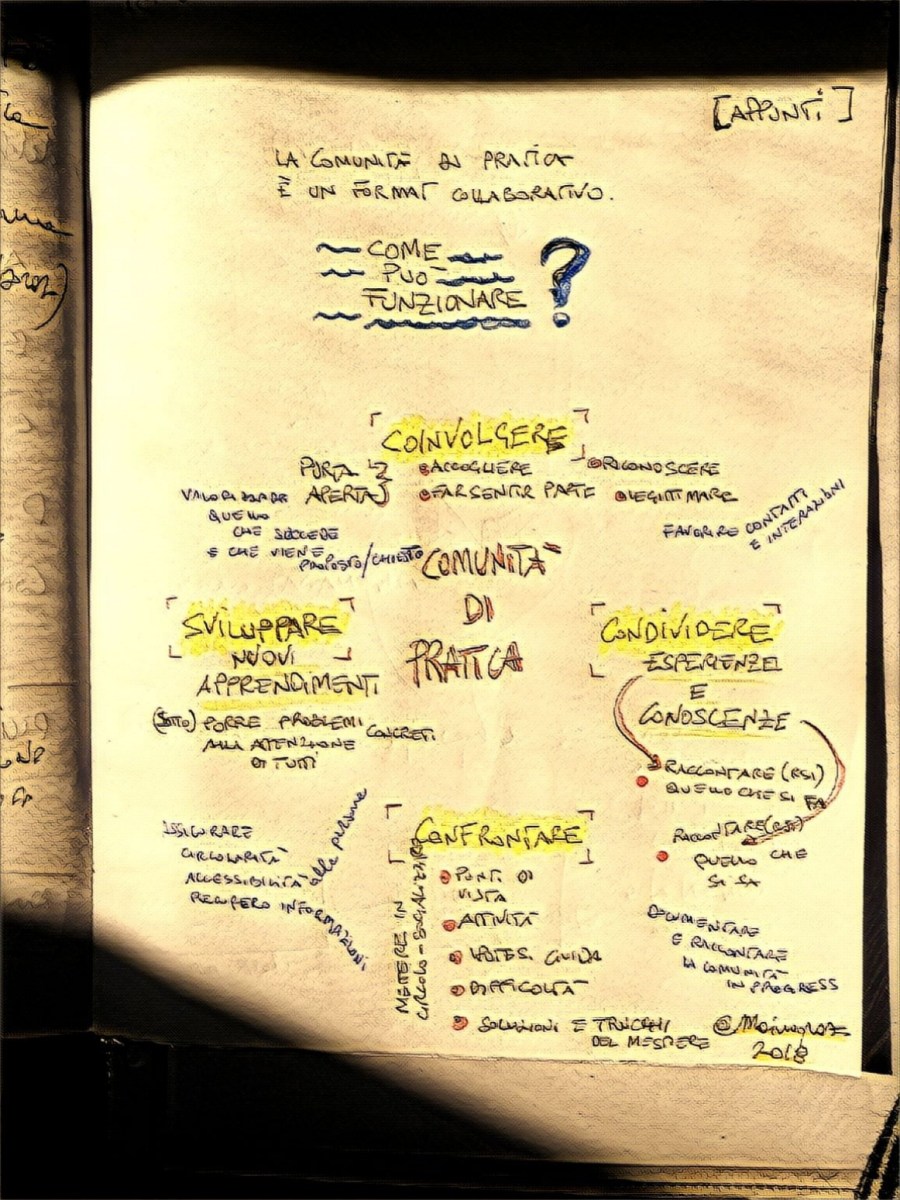 [APPUNTI]
LA COMUNITÀ DI PRATICA
È UN FORMAT COLLABORATIVO.
COME
PUÒ
FUNZIONARE ?
COINVOLGERE
PORTA
APERTA
ACCOGLIERE
FAR SENTIR PARTE
RICONOSCERE
LEGITTIMARE
VALORIZZARE
QUELLO
CHE SUCCEDE
E CHE VIENE
PROPOSTO/CHIESTO
FAVORIRE CONTATTI
E INTERAZIONI
COMUNITÀ
DI
PRATICA
SVILUPPARE
NUOVI
APPRENDIMENTI
(SOTTO) PORRE PROBLEMI
CONCRETI
ALLA ATTENZIONE
DI TUTTI
CONDIVIDERE
ESPERIENZE
E
CONOSCENZE
RACCONTARE (RSI)
QUELLO CHE SI FA
RACCONTARE (RSI)
QUELLO CHE
SI SA
ASSICURARE
CIRCOLARITÀ
ACCESSIBILITÀ
RECUPERO INFORMAZIONI
alle persone
CONFRONTARE
METTERE IN
CIRCOLO - SOCIALIZZARE
PUNTI DI
VISTA
ATTIVITÀ
IPOTESI GUIDA
DIFFICOLTÀ
SOLUZIONI E TRUCCHI
DEL MESTIERE
DOCUMENTARE
E RACCONTARE
LA COMUNITÀ
IN PROGRESS
2018